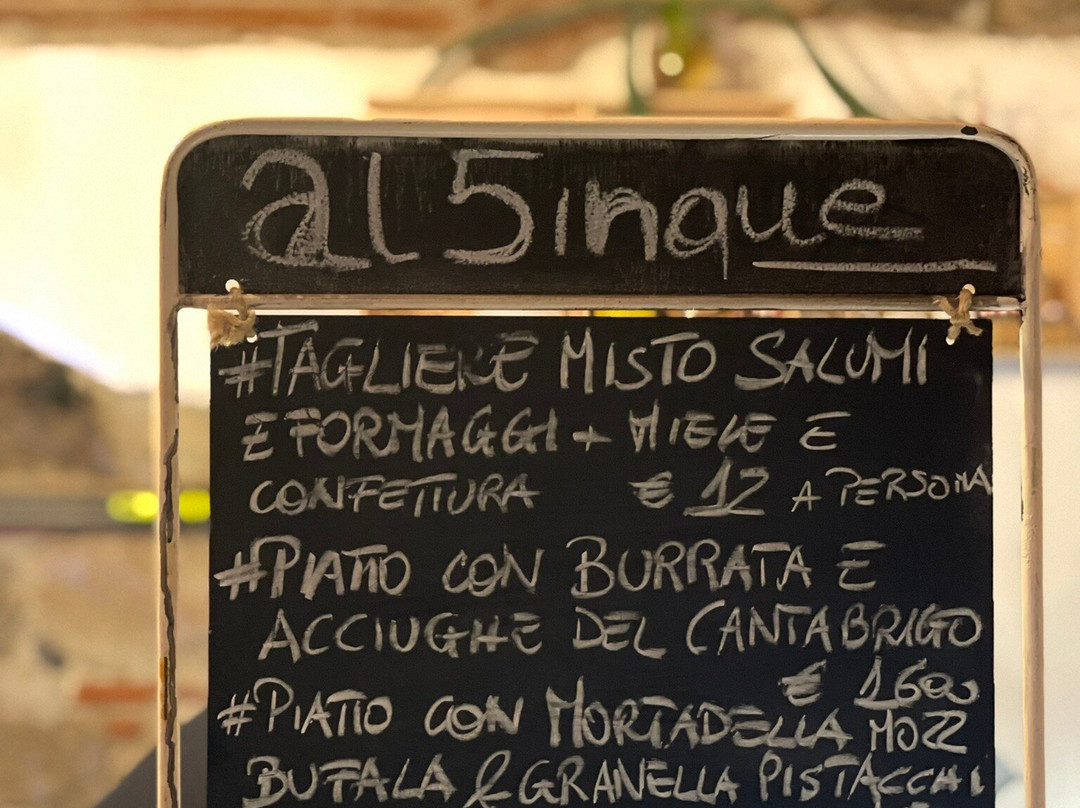 al 5inque
#TAGLIERE MISTO SALUMI
E FORMAGGI + MIELE E
CONFETTURA € 12 A PERSONA
#PIATTO CON BURRATA E
ACCIUGHE DEL CANTABRIGO
€ 1600
#PIATTO CON MORTADELLA MOZZ
BUFALA & GRANELLA PISTACCHI